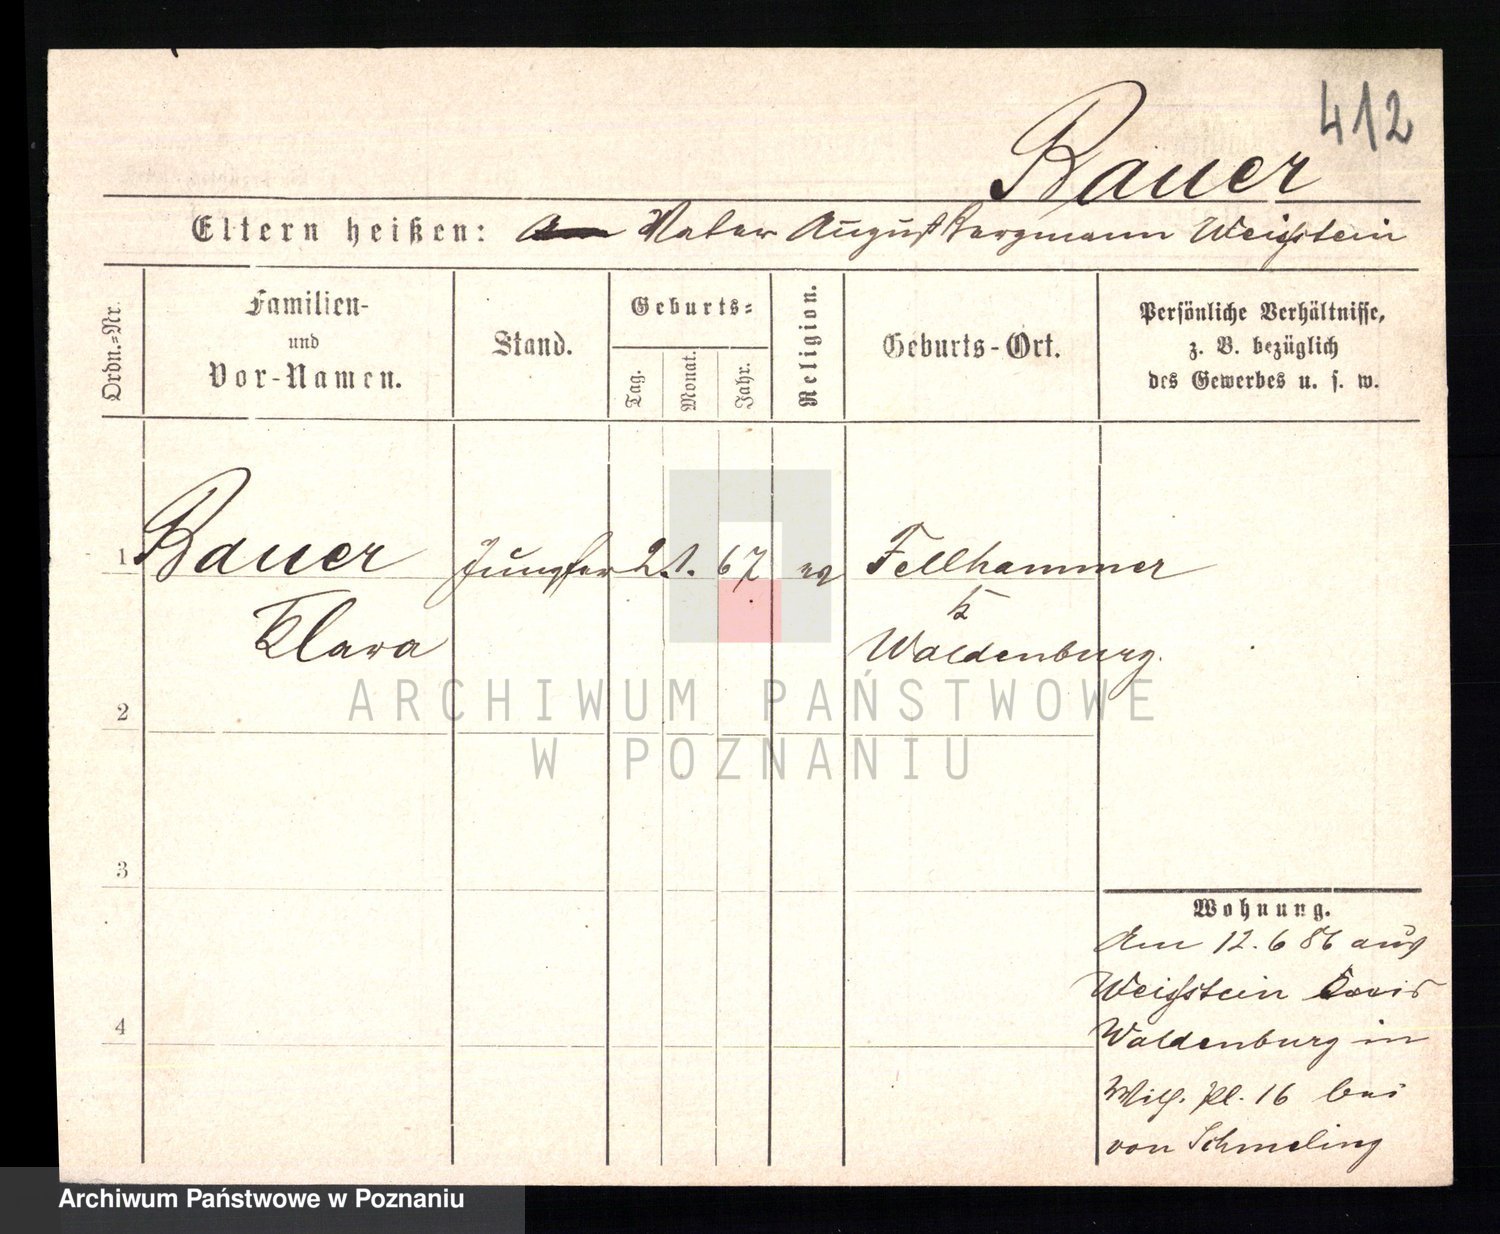 412
Bauer
Eltern heißen: Vater August Bergmann Weißstein
Ordn.=Nr.
Familien-
und
Vor-Namen.
Stand.
Geburts=
Tag.
Monat.
Jahr.
Religion.
Geburts-Ort.
Persönliche Verhältnisse,
z. B. bezüglich
des Gewerbes u. s. w.
1 Bauer Jungfer 2. 1. 67 ev Fellhammer
Klara Waldenburg.
2
3
4
Wohnung.
Am 12. 6 86 aus
Weißstein Kreis
Waldenburg in
Wilh. Pl. 16 bei
von Schmeling
ARCHIWUM PAŃSTWOWE
W POZNANIU
Archiwum Państwowe w Poznaniu